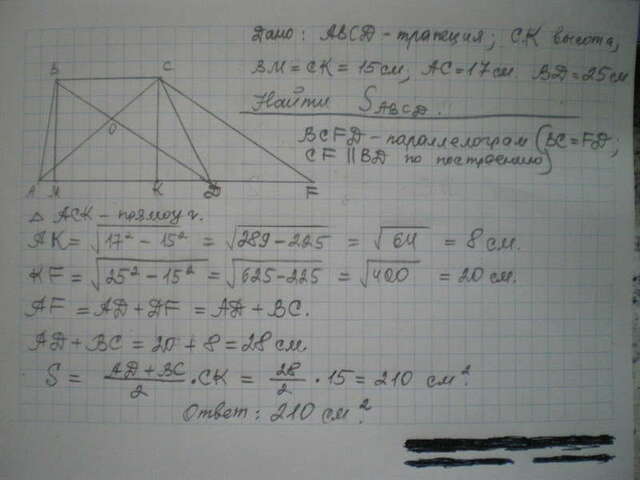 Дано: ABCD - трапеция; CK высота;
BM = CK = 15 см, AC = 17 см. BD = 25 см
Найти S ABCD.
BCFD - параллелограм (BC = FD;
CF || BD по построению)
B C
O
A M K D F
△ ACK - прямоуг.
AK = √17² - 15² = √289 - 225 = √64 = 8 см.
KF = √25² - 15² = √625 - 225 = √400 = 20 см.
AF = AD + DF = AD + BC.
AD + BC = 20 + 8 = 28 см.
S = AD + BC / 2 · CK = 28 / 2 · 15 = 210 см².
Ответ: 210 см².